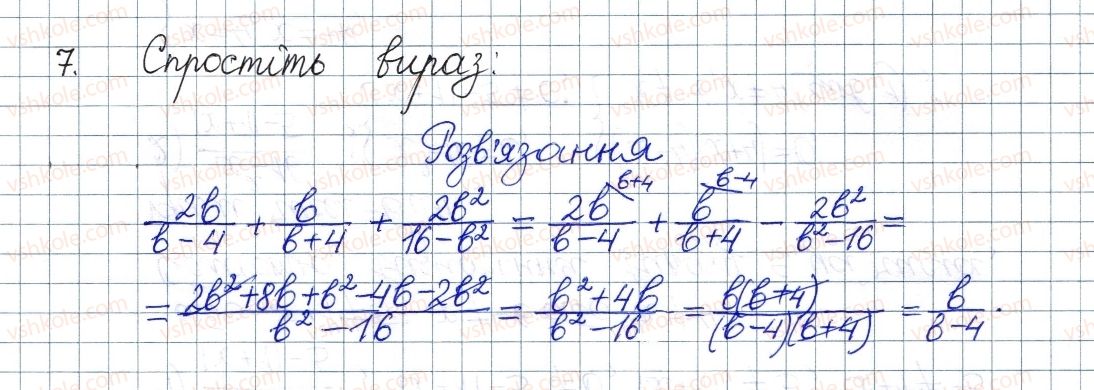 7. Спростіть вираз:
Розв'язання
2b/(b-4) + b/(b+4) + 2b²/(16-b²) = 2b/(b-4) ^(b+4) + b/(b+4) ^(b-4) - 2b²/(b²-16) =
= (2b²+8b+b²-4b-2b²)/(b²-16) = (b²+4b)/(b²-16) = b(b+4)/((b-4)(b+4)) = b/(b-4).